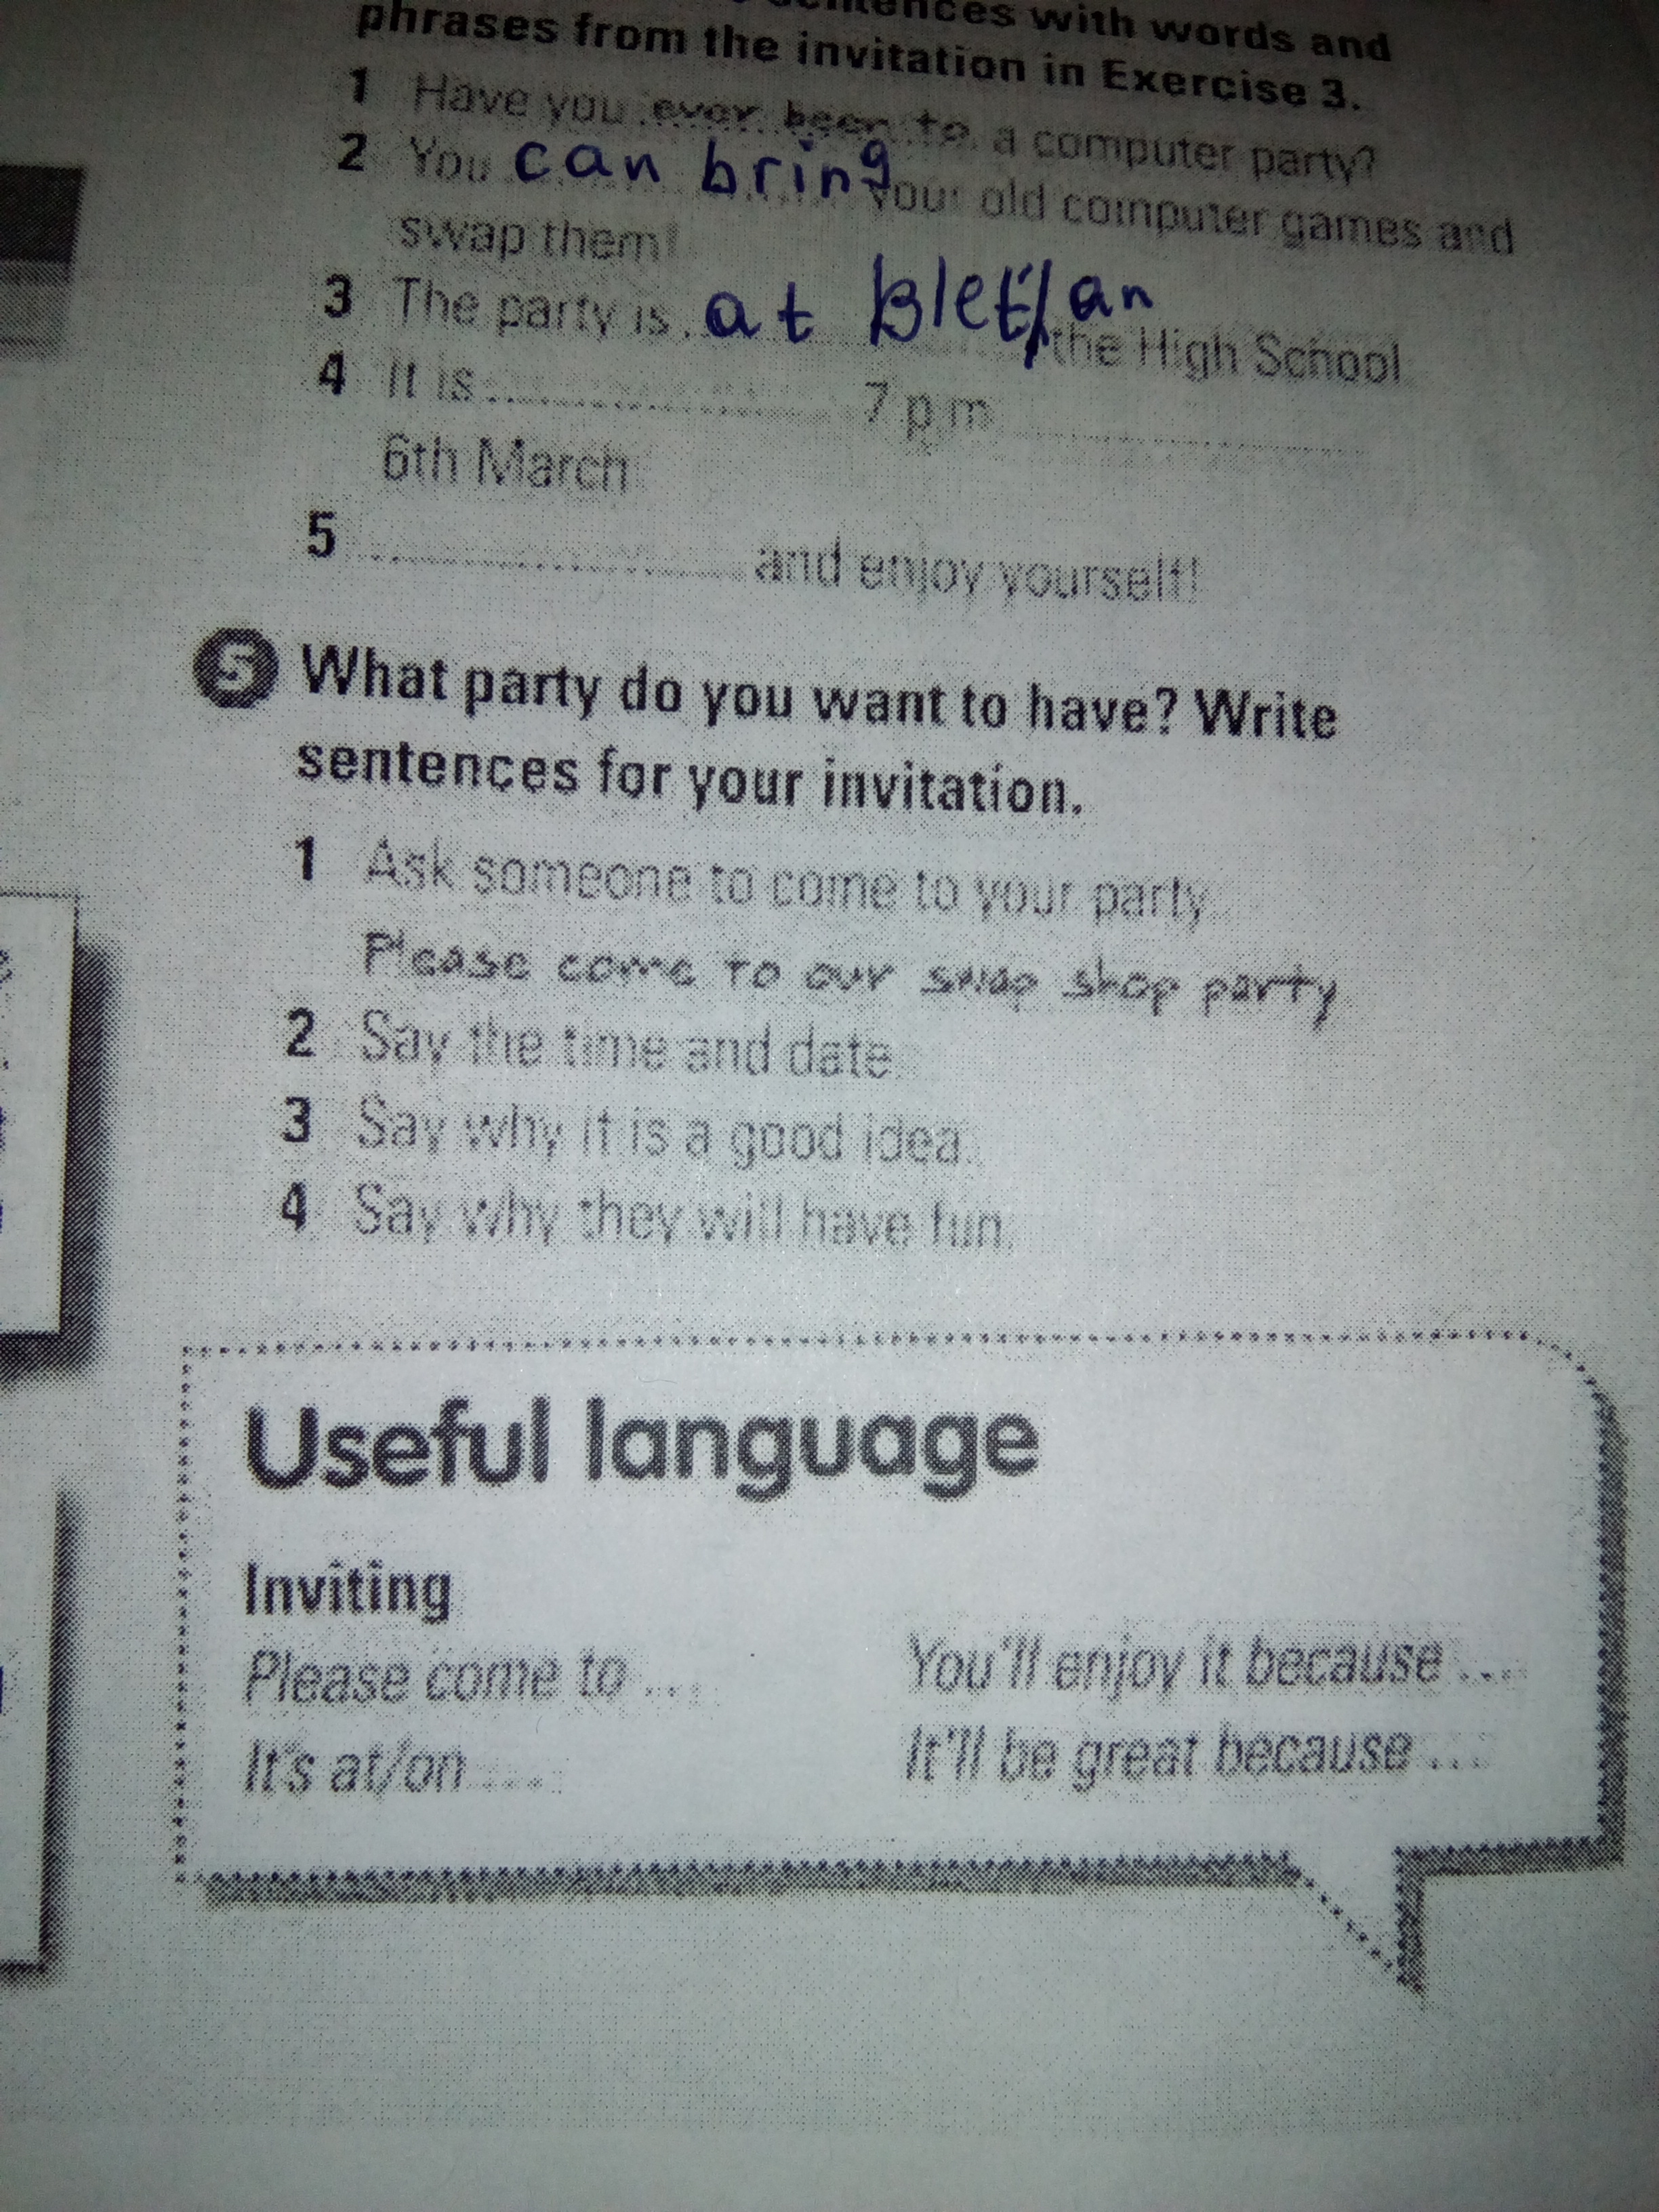 sentences with words and
phrases from the invitation in Exercise 3.
1 Have you ever been to a computer party?
2 You can bring your old computer games and
swap them!
3 The party is at the High School
4 It is .................... 7 p.m. ....................
6th March
5 .................... and enjoy yourself!
5 What party do you want to have? Write
sentences for your invitation.
1 Ask someone to come to your party.
Please come to our swap shop party
2 Say the time and date.
3 Say why it is a good idea.
4 Say why they will have fun.
Useful language
Inviting
Please come to ... You'll enjoy it because ...
It's at/on ... It'll be great because ...